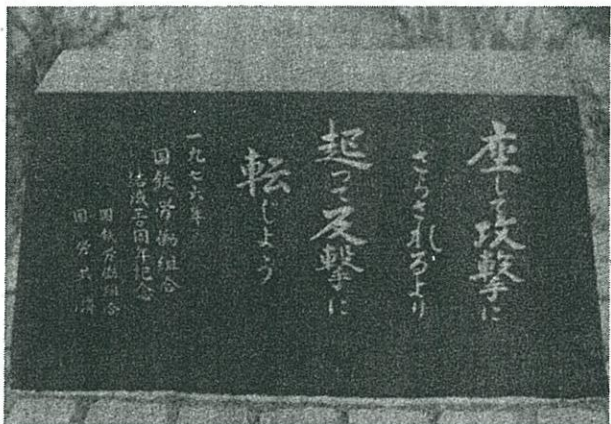 座して攻撃に
さらされるより
起って反撃に
転しよう
一九七六年
国鉄労働組合
結成三〇周年記念
国鉄労働組合
国労共済